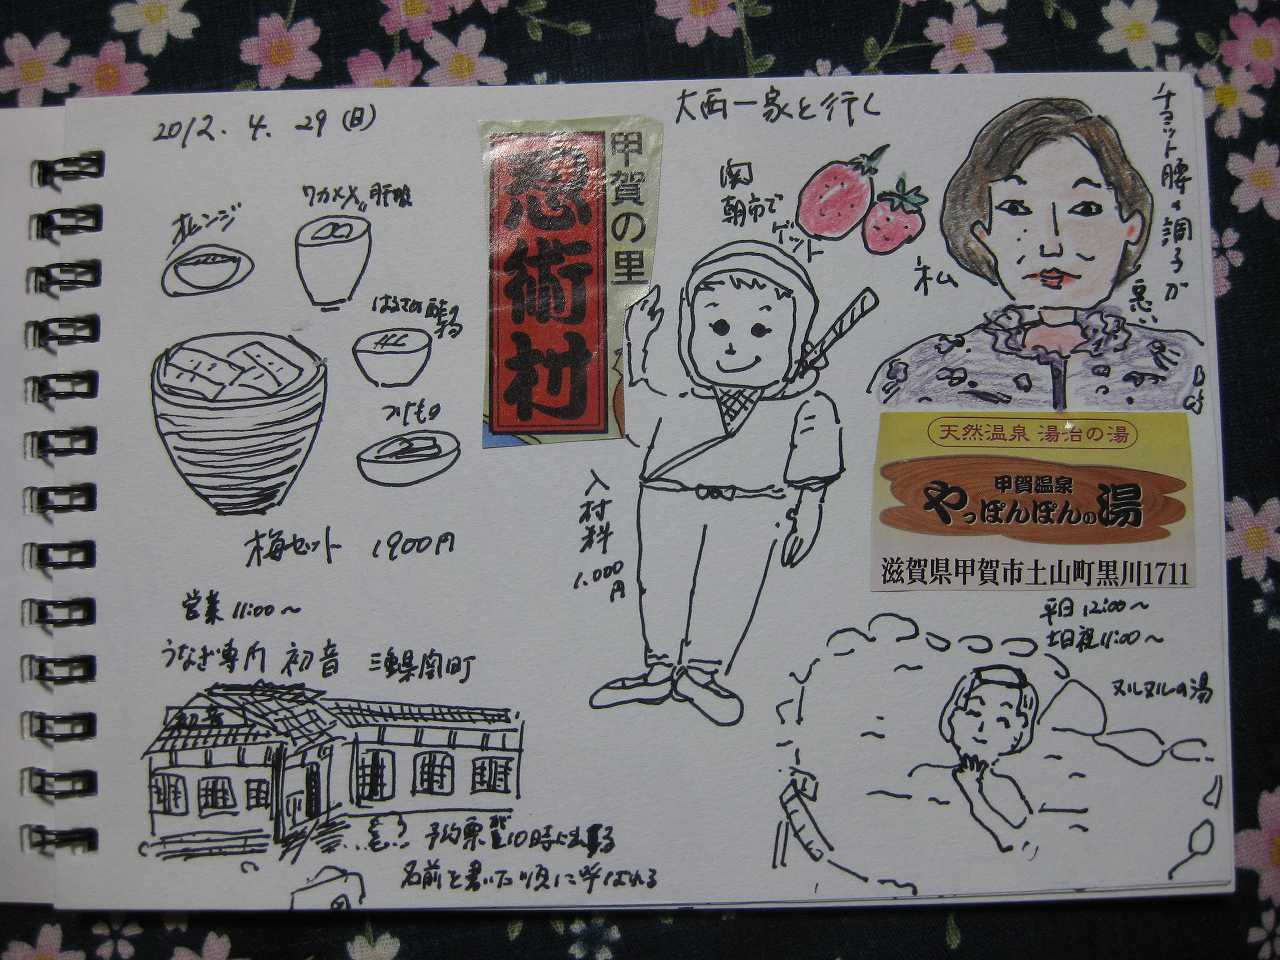 2012. 4. 29 (日)
大西一家と行く
オレンジ
ワカメ 肝吸
はるさめ 酢の物
つけもの
梅セット 1900円
営業 11:00〜
うなぎ専門 初音 三重県関町
初音
予約票 10時に出る
名前を書いた順に呼ばれる
甲賀の里
忍術村
入村料 1.000円
関
朝市で
ゲット
私
チョット腰の調子が悪い
天然温泉 湯治の湯
甲賀温泉
やっぽんぽんの湯
滋賀県甲賀市土山町黒川1711
平日 12:00〜
土日祝 11:00〜
ヌルヌルの湯